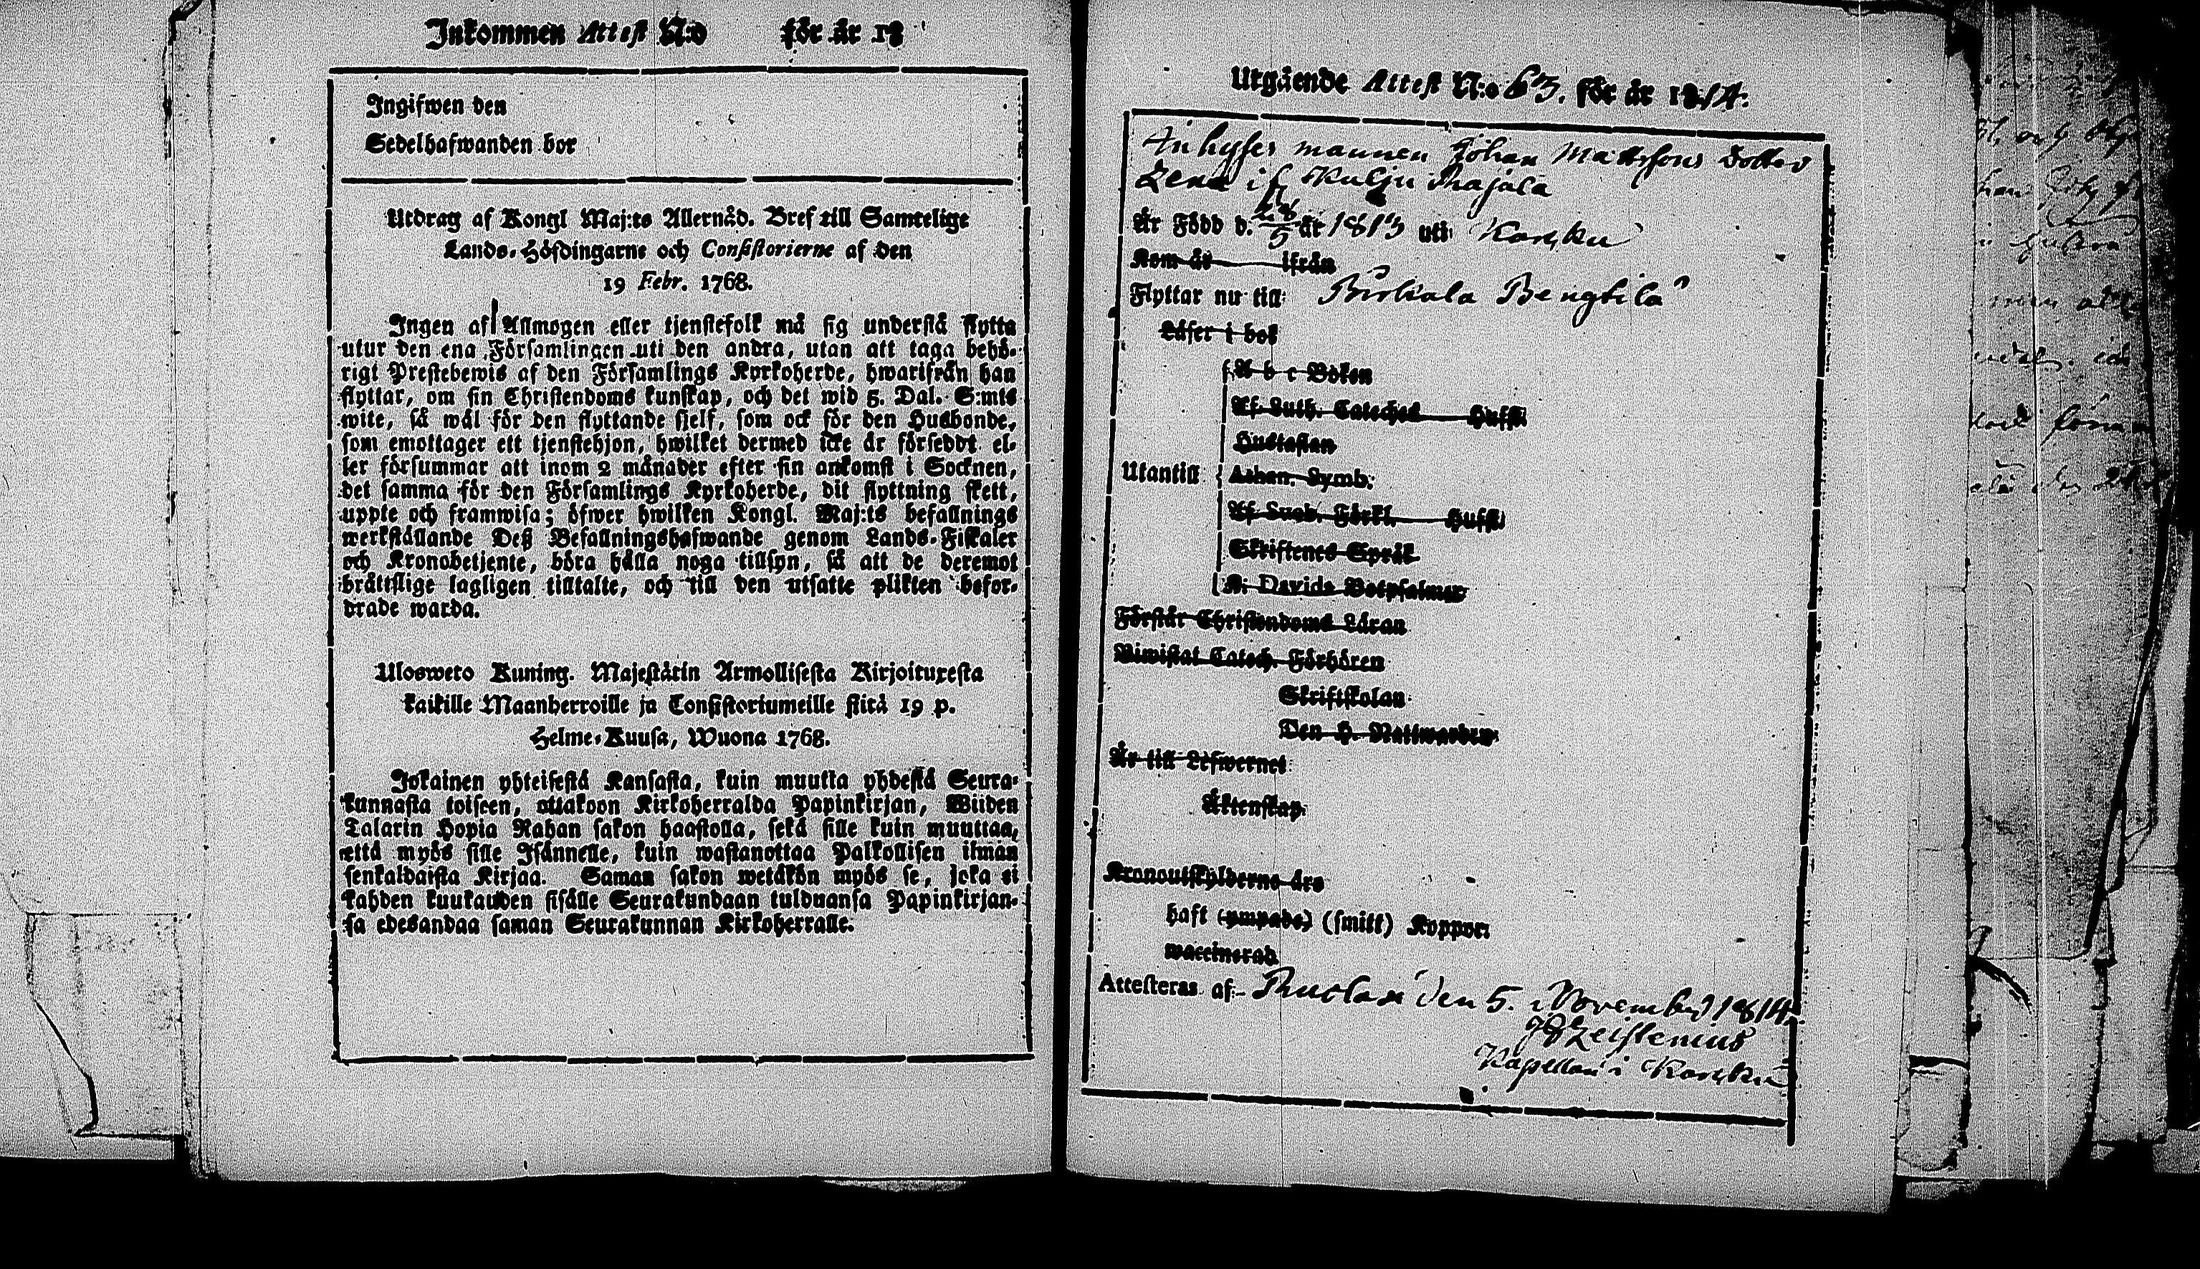 Inkommen Attest N:o för år 18
Ingifwen den
Sedelhafwanden bor
Utdrag af Kongl Maj:ts Allernåd. Bref till Samtelige
Lands-Höfdingarne och Consistorierne af den
19 Febr. 1768.
Ingen af Allmogen eller tjenstefolk må sig understå flytta
utur den ena Församlingen uti den andra, utan att taga behö-
rigt Prestebewis af den Församlings Kyrkoherde, hwarifrån han
flyttar, om sin Christendoms kunskap, och det wid 5. Dal. S:mts
wite, så wäl för den flyttande sjelf, som ock för den Husbonde,
som emottager ett tjenstehjon, hwilket dermed icke är förseddt el-
ler försummar att inom 2 månader efter sin ankomst i Socknen,
det samma för den Församlings Kyrkoherde, dit flyttning skett,
uppte och framwisa; öfwer hwilken Kongl. Maj:ts befallnings
werkställande Deß Befallningshafwande genom Lands-Fiskaler
och Kronobetjente, böra hålla noga tillsyn, så att de deremot
bråttslige lagligen tilltalte, och till den utsatte plikten befor-
drade warda.
Ulosweto Kuning. Majestätin Armollisesta Kirjoituxesta
kaikille Maanherroille ja Consistoriumeille siitä 19 p.
Helme-Kuusa, Wuona 1768.
Jokainen yhteisestä Kansasta, kuin muutta yhdestä Seura-
kunnasta toiseen, ottakoon Kirkoherralda Papinkirjan, Wiiden
Talarin Hopia Rahan sakon haastolla, sekä sille kuin muuttaa,
että myös sille Isännelle, kuin wastanottaa Palkollisen ilman
senkaldaista Kirjaa. Saman sakon wetäkön myös se, joka ei
kahden kuukauden sisälle Seurakundaan tulduansa Papinkirjan-
sa edesandaa saman Seurakunnan Kirkoherralle.
Utgående Attest N:o 63. för år 1814.
Inhyses mannen Johan Mattssons dotter
Lena ifr Kulju Rajala
Är Född d. 28/5 år 1813 uti Karkku
Kom år ifrån
Flyttar nu till Birkala Bengtilä
Läser i bok
A b c Boken
Af Luth. Cateches Hufst.
Hustaflan
Utantill Athan. Symb.
Af Sweb. Förkl. Hufst.
Skriftenes Språk
K. Davids Botpsalmer
Förstår Christendoms Läran
Biwistat Catech. Förhören
Skriftskolan
Den H. Nattwarden
Är till Lefwernet
Äktenskap.
Kronoutskylderne års
haft (ympade) (smitt) Koppor
waccinerad
Attesteras af den 5. November 1814.
Kapellan i Karkku